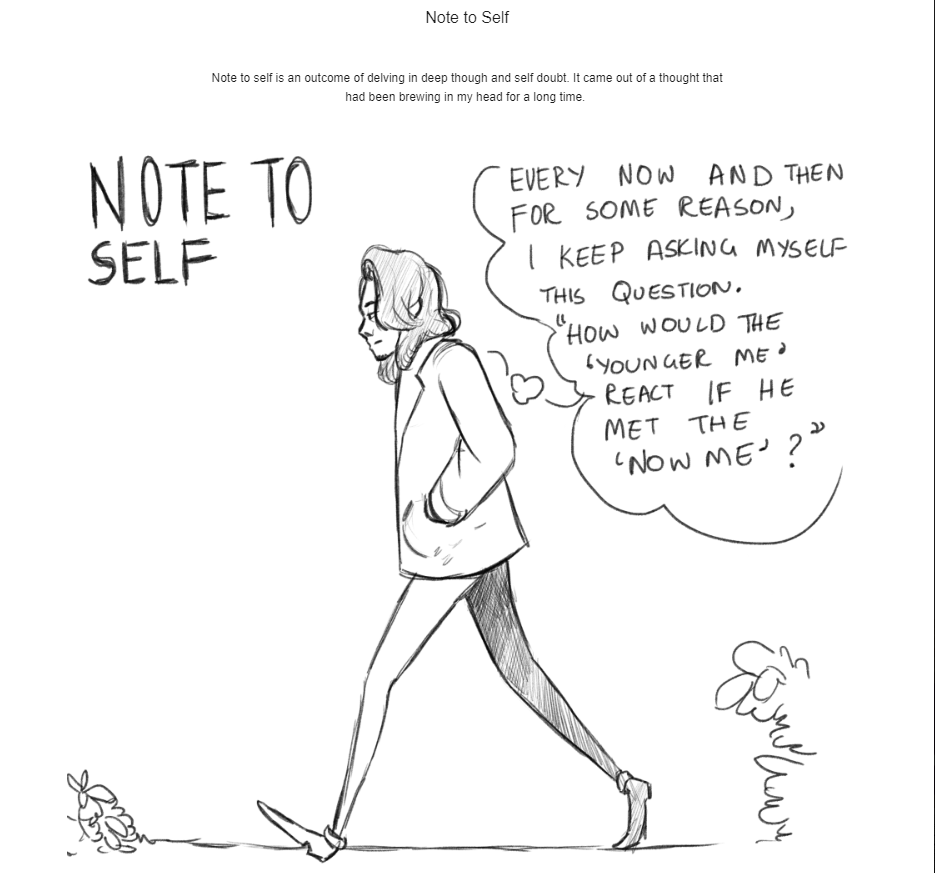 Note to Self
Note to self is an outcome of delving in deep though and self doubt. It came out of a thought that
had been brewing in my head for a long time.
NOTE TO
SELF
EVERY NOW AND THEN
FOR SOME REASON,
I KEEP ASKING MYSELF
THIS QUESTION.
"HOW WOULD THE
'YOUNGER ME'
REACT IF HE
MET THE
'NOW ME'?"